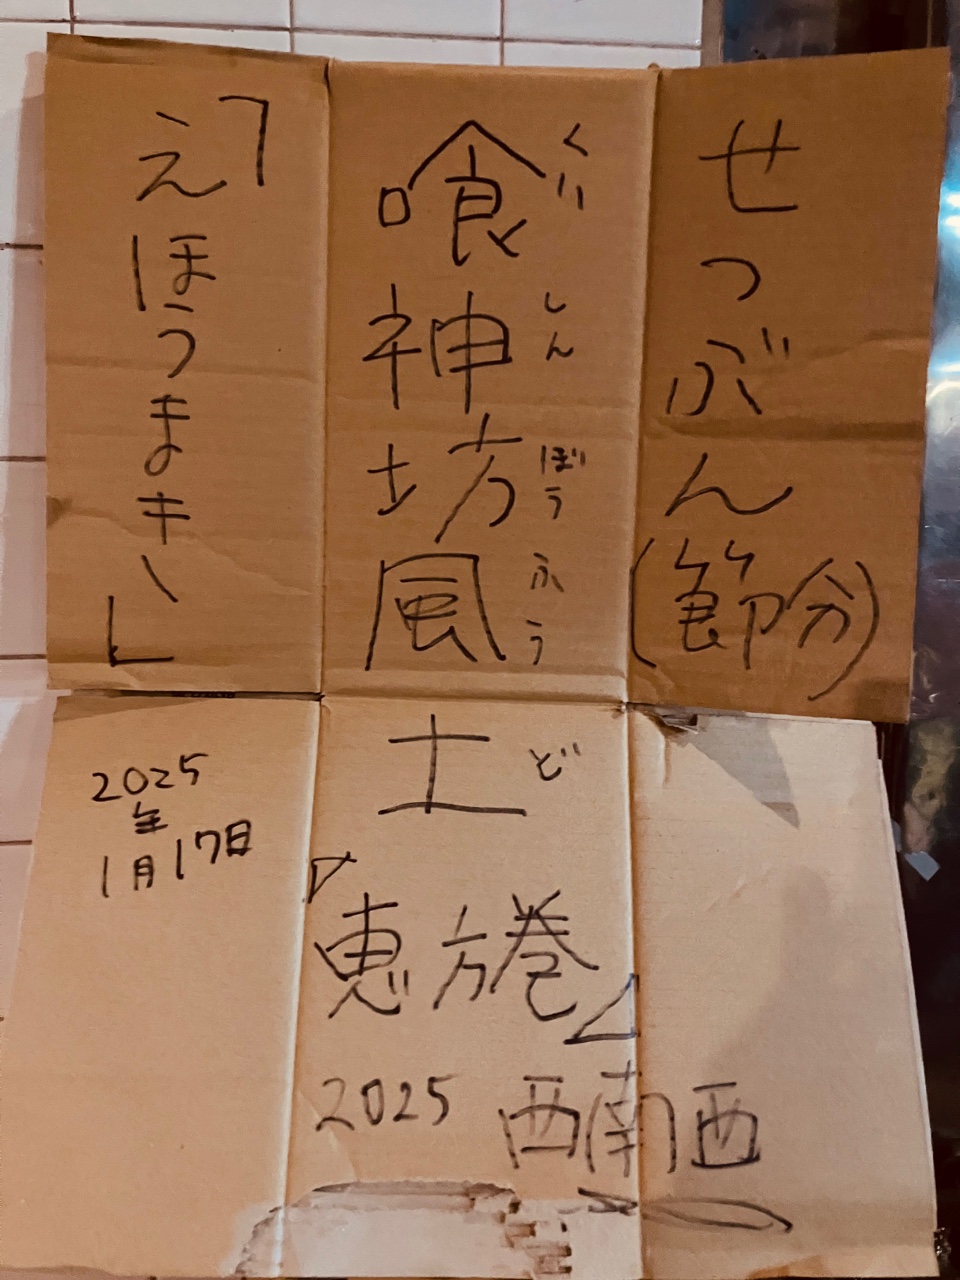 せつぶん
(節分)
喰神坊風
くいしんぼうふう
「えほうまき、」
土
ど
『恵方巻』
2025 西南西
2025
年
1月17日